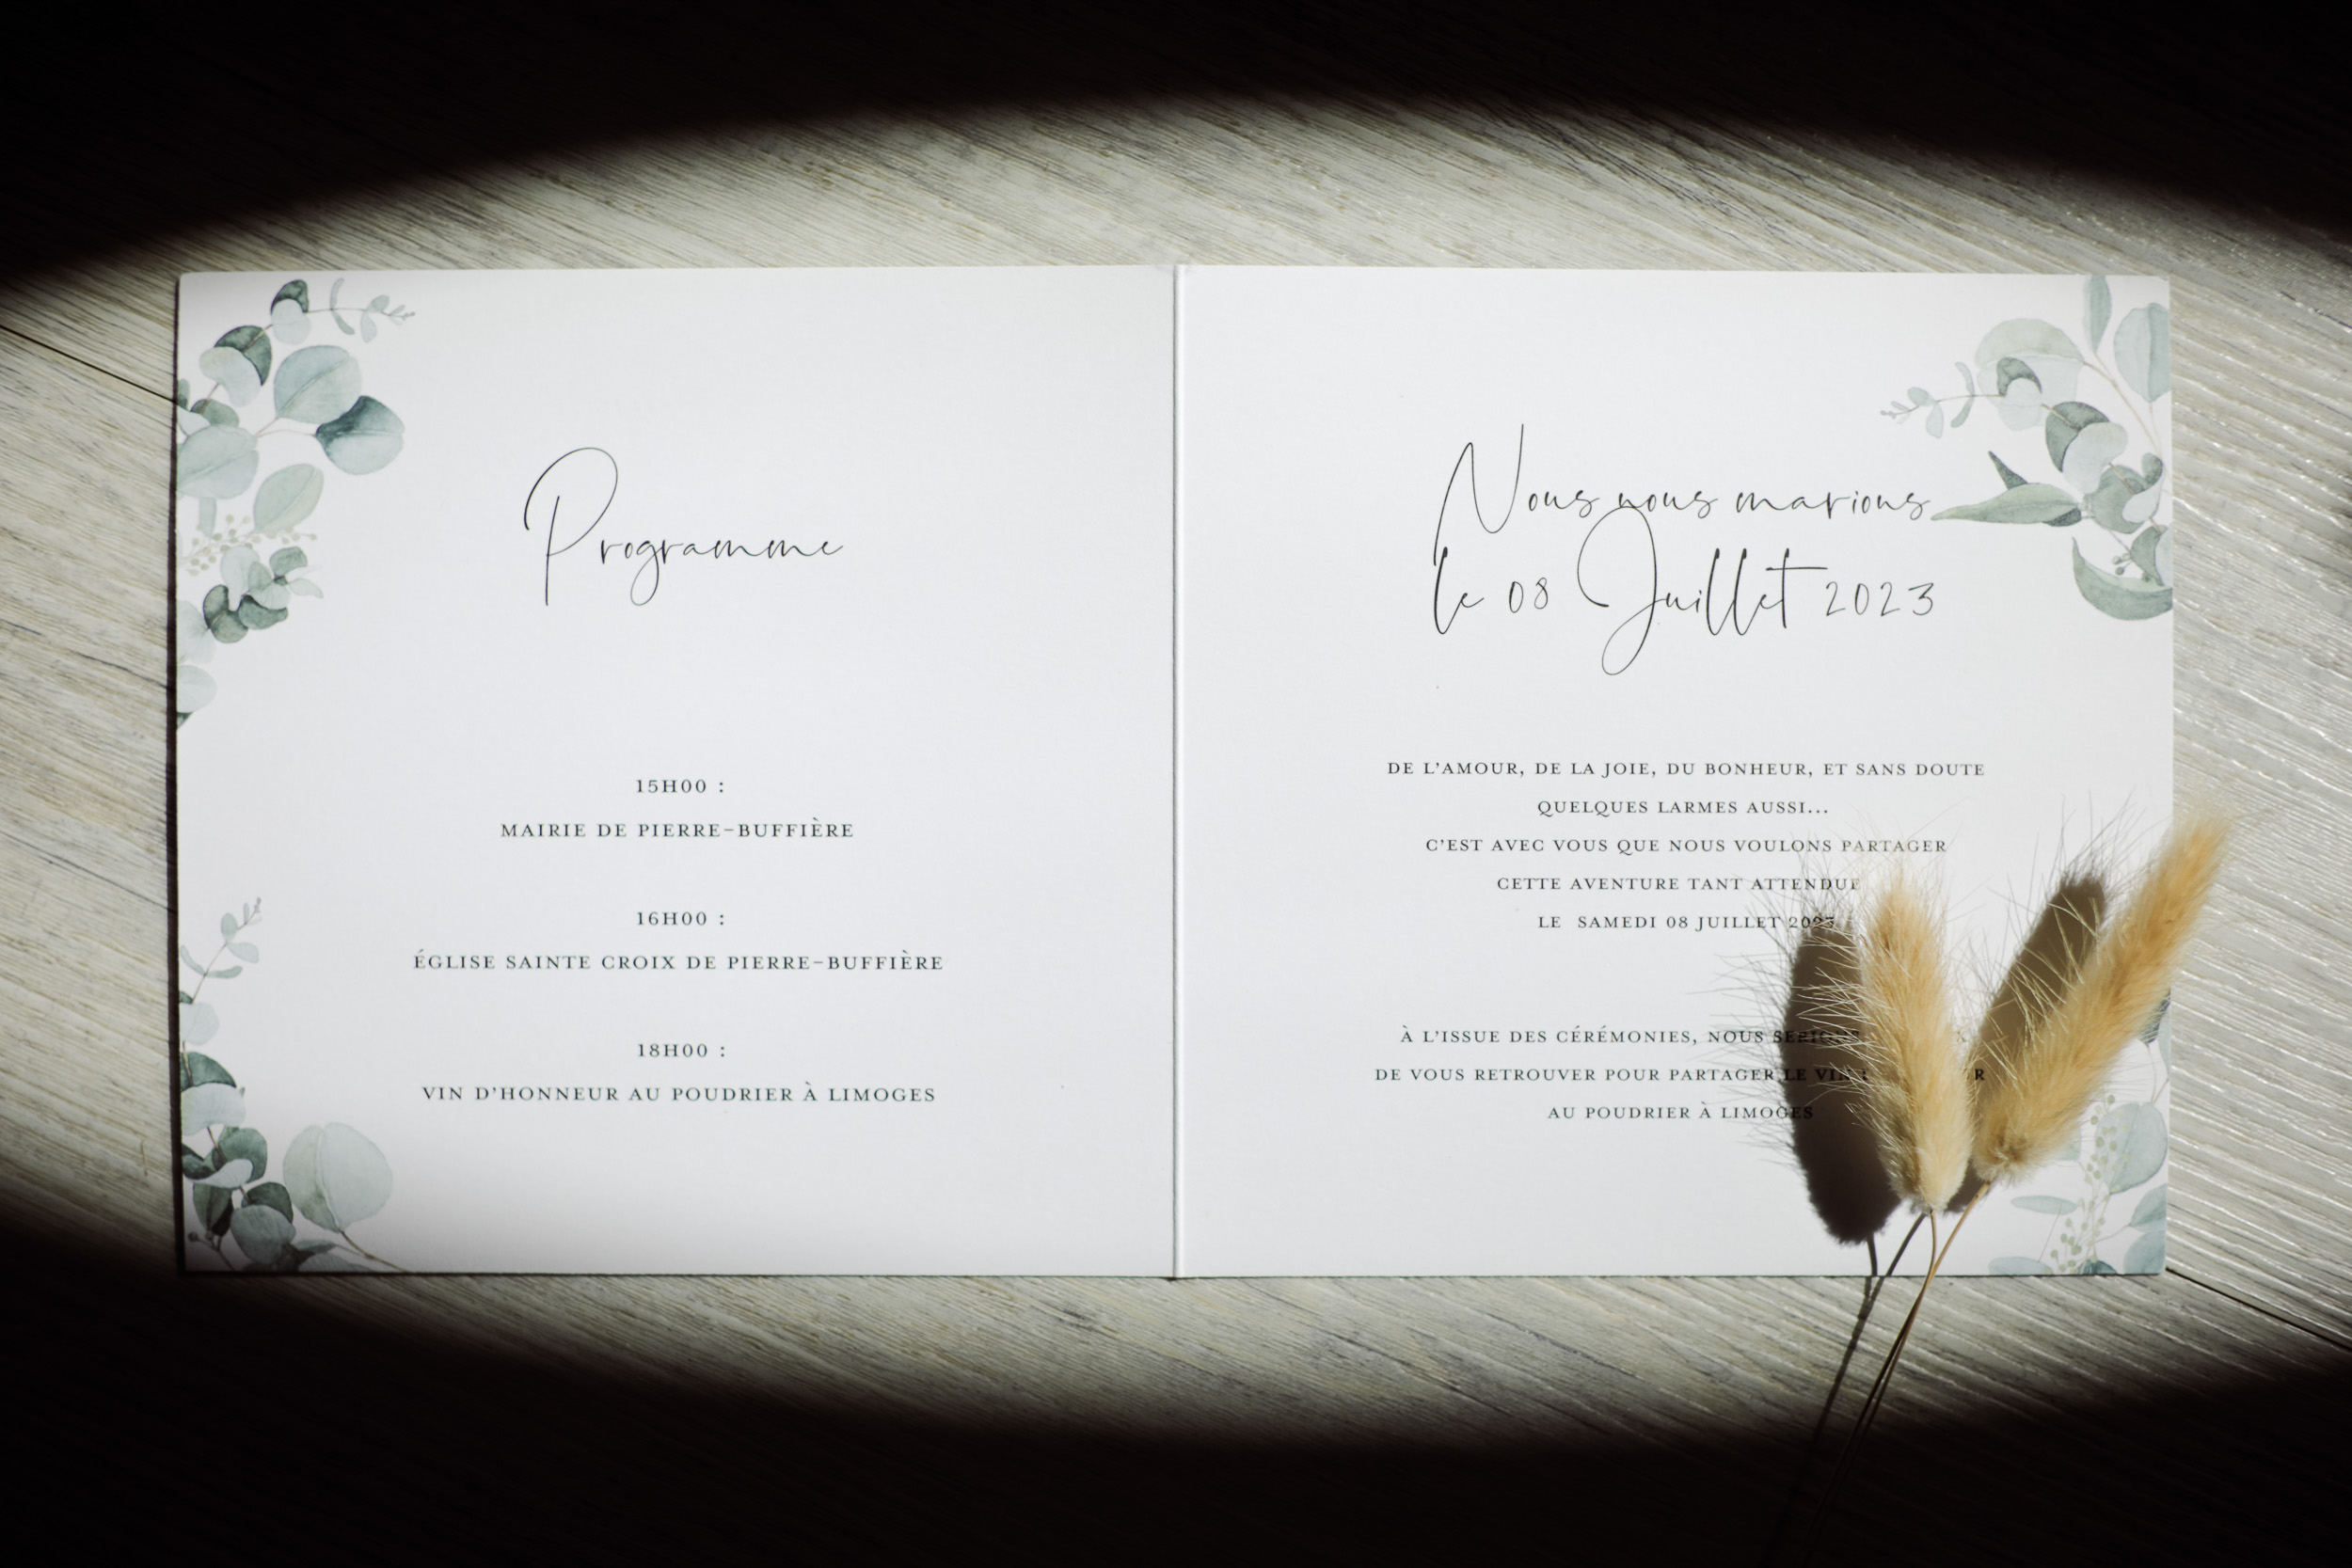 Programme
15H00 :
MAIRIE DE PIERRE-BUFFIÈRE
16H00 :
ÉGLISE SAINTE CROIX DE PIERRE-BUFFIÈRE
18H00 :
VIN D'HONNEUR AU POUDRIER À LIMOGES
Nous nous marions
le 08 Juillet 2023
DE L'AMOUR, DE LA JOIE, DU BONHEUR, ET SANS DOUTE
QUELQUES LARMES AUSSI...
C'EST AVEC VOUS QUE NOUS VOULONS PARTAGER
CETTE AVENTURE TANT ATTENDUE
LE SAMEDI 08 JUILLET 2023
À L'ISSUE DES CÉRÉMONIES, NOUS SERIONS
DE VOUS RETROUVER POUR PARTAGER LE VIN
AU POUDRIER À LIMOGES